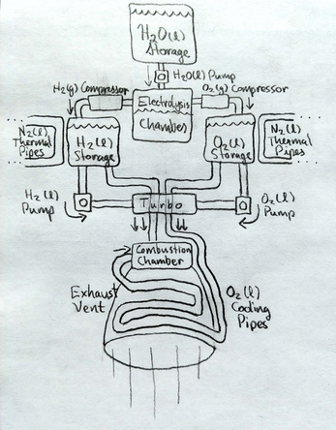 H₂O(l)
Storage
H₂O(l) Pump
H₂(g) Compressor
O₂(g) Compressor
Electrolysis
Chambers
N₂(l)
Thermal
Pipes
H₂(l)
Storage
O₂(l)
Storage
N₂(l)
Thermal
Pipes
H₂(l)
Pump
Turbo
O₂(l)
Pump
Combustion
Chamber
Exhaust
Vent
O₂(l)
Cooling
Pipes